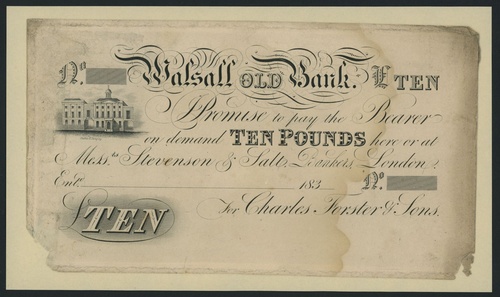 No. Walsall OLD Bank. £ TEN
I Promise to pay the Bearer
on demand TEN POUNDS here or at
Messrs Stevenson & Salt, Bankers, London.
Entd. 183 No.
£TEN For Charles Forster & Sons.